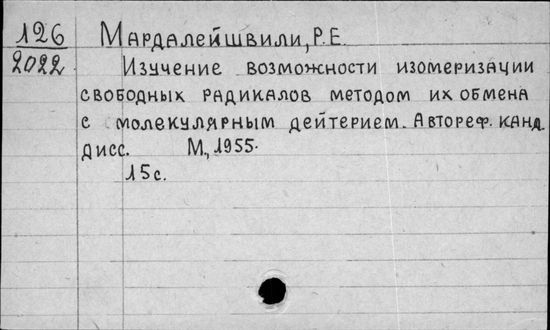 126 Мардалейшвили, Р.Е.
2022 Изучение возможности изомеризации
свободных радикалов методом их обмена
с молекулярным дейтерием. Автореф. канд.
дисс. М., 1955.
15 с.